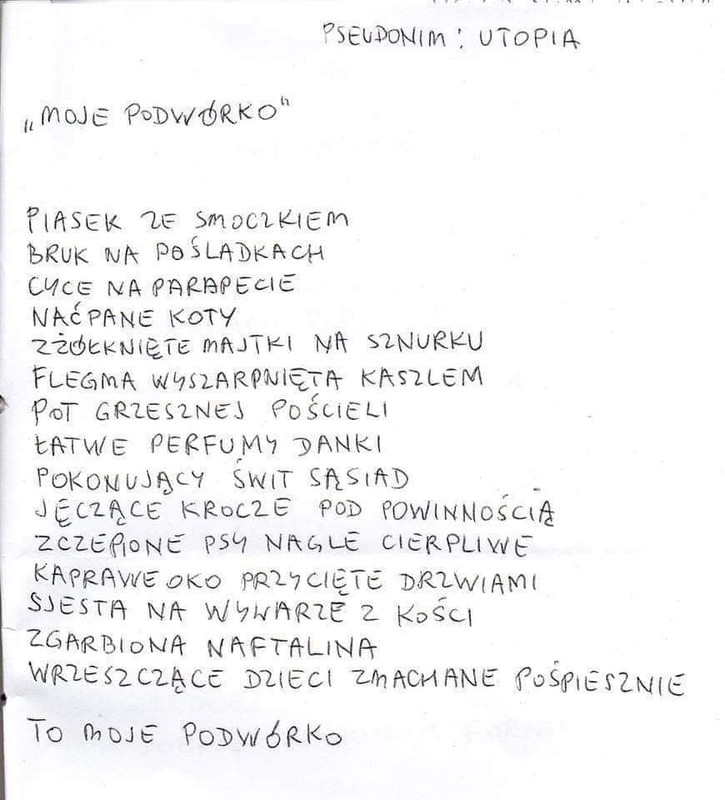 PSEUDONIM: UTOPIA
„MOJE PODWÓRKO"
PIASEK ZE SMOCZKIEM
BRUK NA POŚLADKACH
CYCE NA PARAPECIE
NAĆPANE KOTY
ZŻÓŁKNIĘTE MAJTKI NA SZNURKU
FLEGMA WYSZARPNIĘTA KASZLEM
POT GRZESZNEJ POŚCIELI
ŁATWE PERFUMY DANKI
POKONUJĄCY ŚWIT SĄSIAD
JĘCZĄCE KROCZE POD POWINNOŚCIĄ
ZCZEPIONE PSY NAGLE CIERPLIWE
KAPRAWE OKO PRZYCIĘTE DRZWIAMI
SJESTA NA WYWARZE Z KOŚCI
ZGARBIONA NAFTALINA
WRZESZCZĄCE DZIECI ZMACHANE POŚPIESZNIE
TO MOJE PODWÓRKO